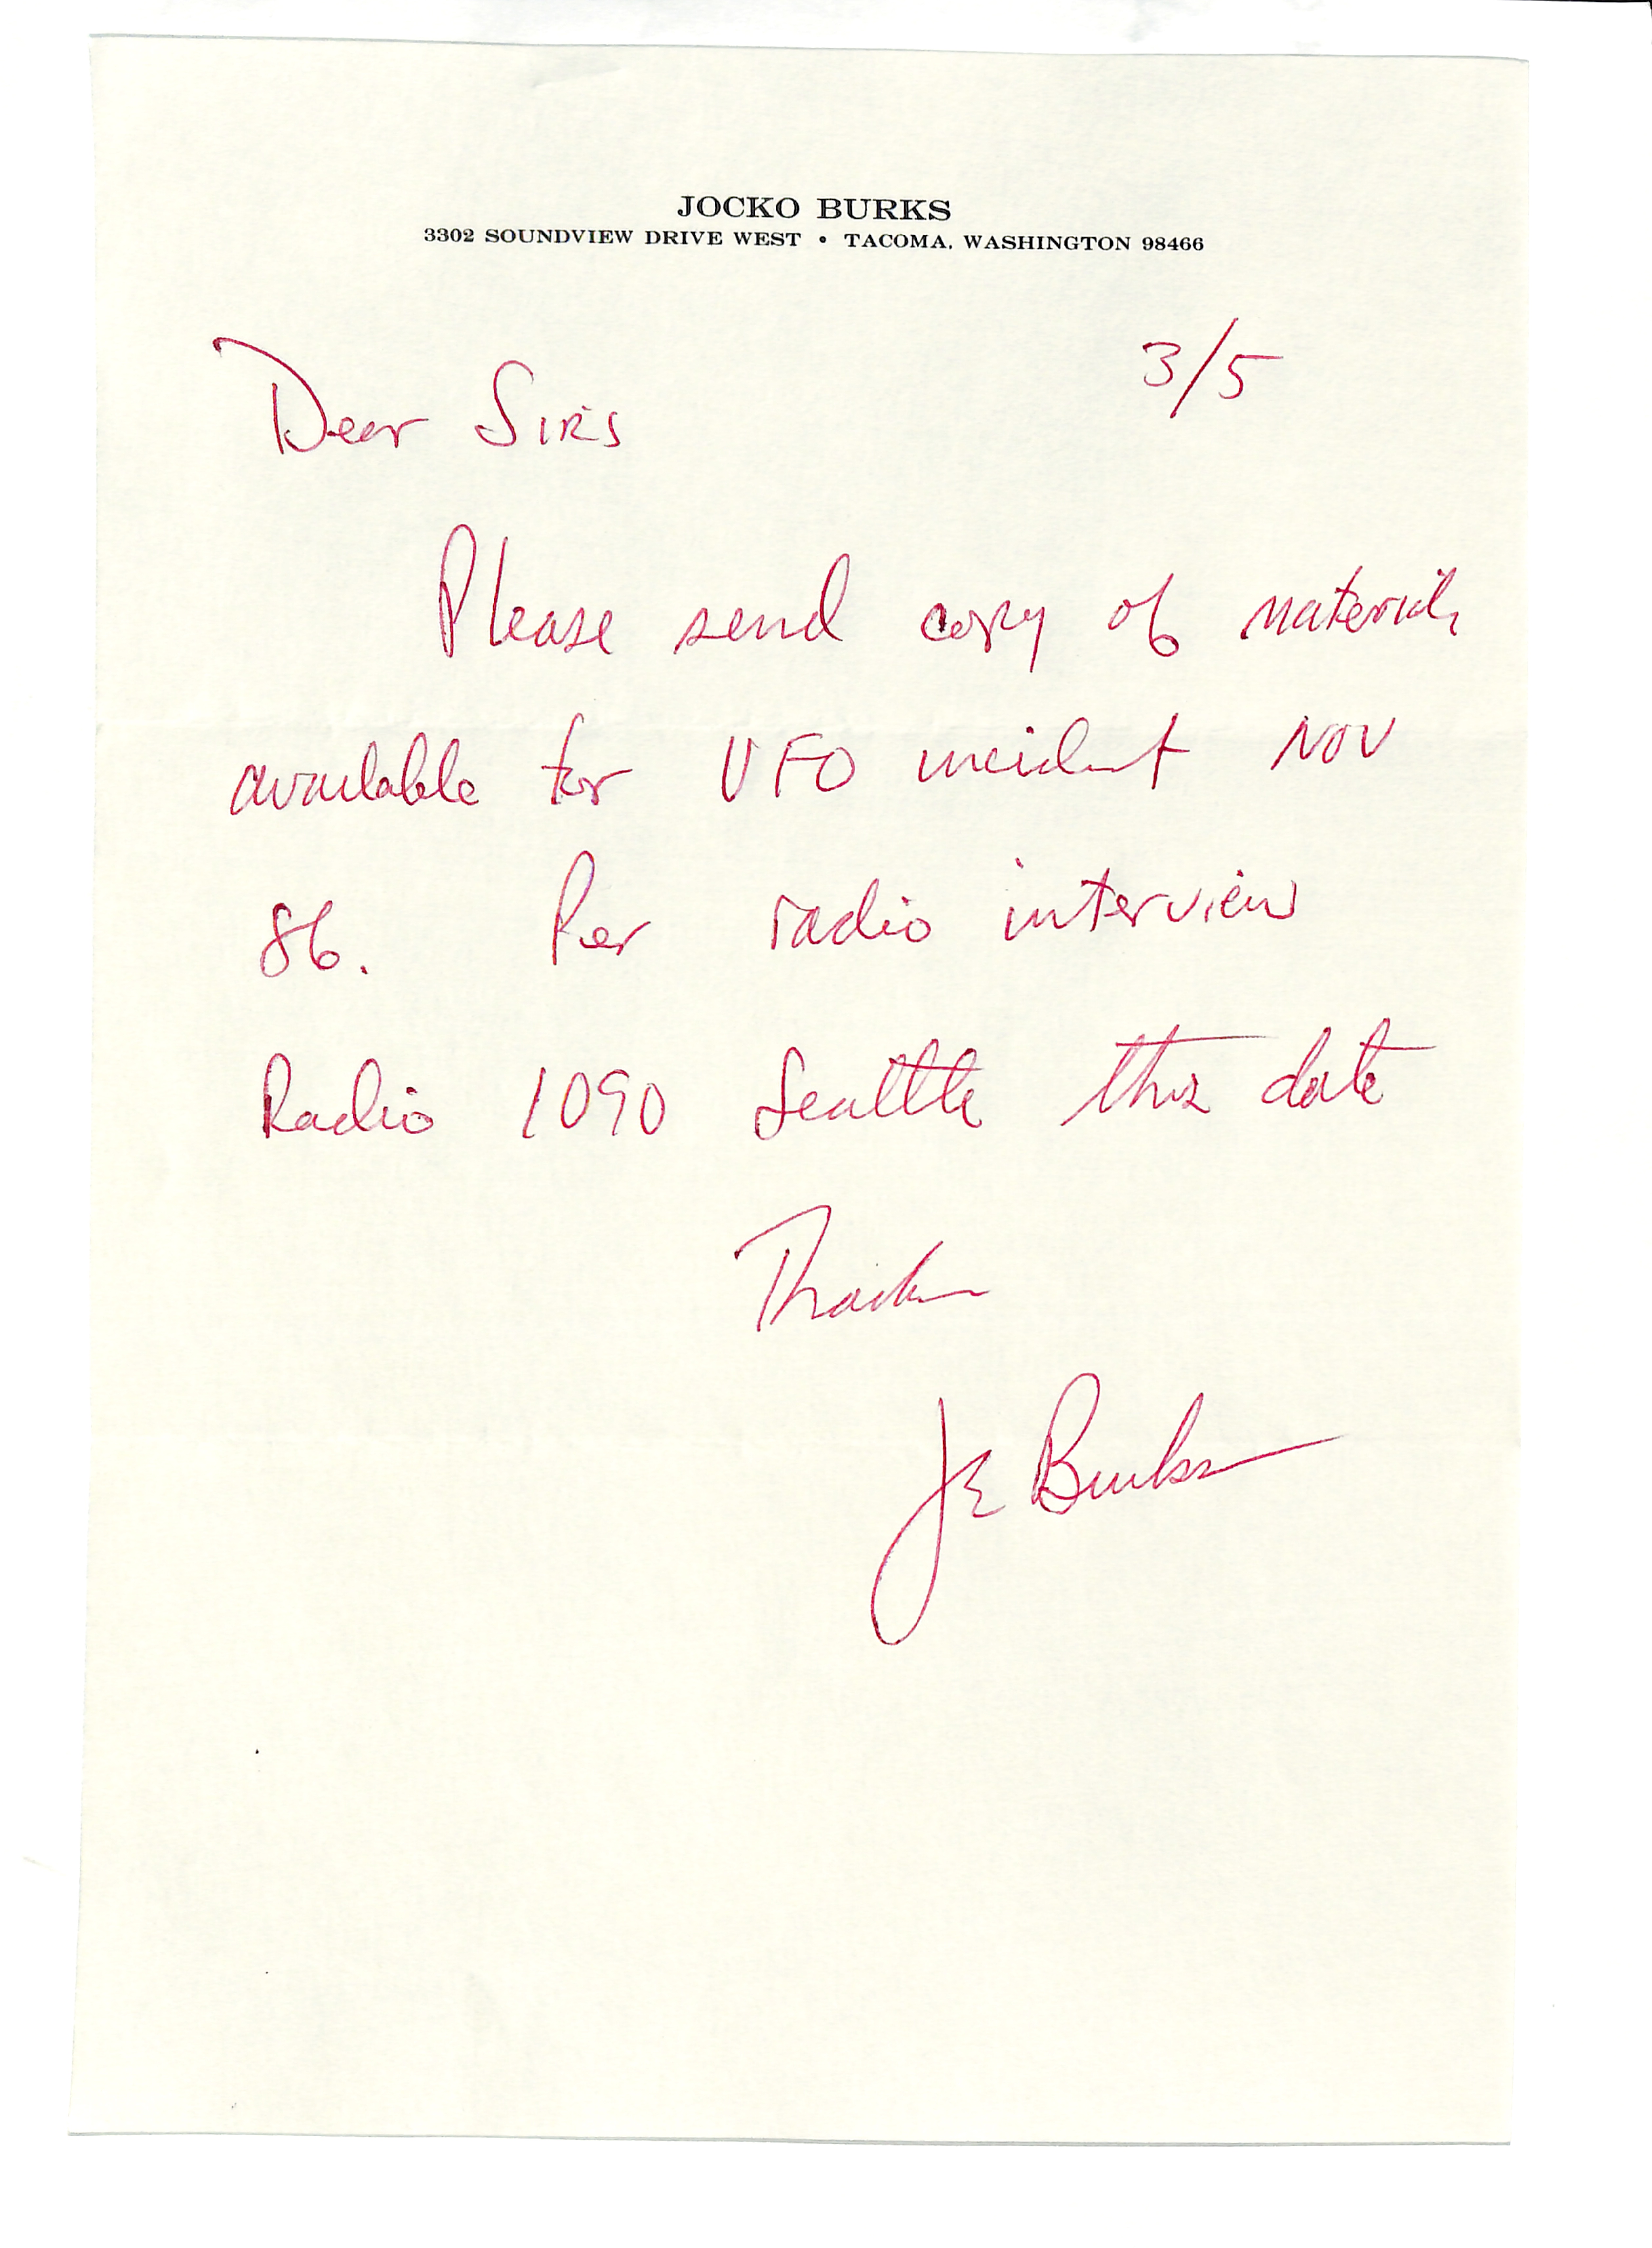 JOCKO BURKS
3302 SOUNDVIEW DRIVE WEST • TACOMA, WASHINGTON 98466
3/5
Dear SIRS
Please send copy of materials
available for UFO incident NOV
86. Per radio interview
Radio 1090 Seattle this date
Thanks
JE Burks